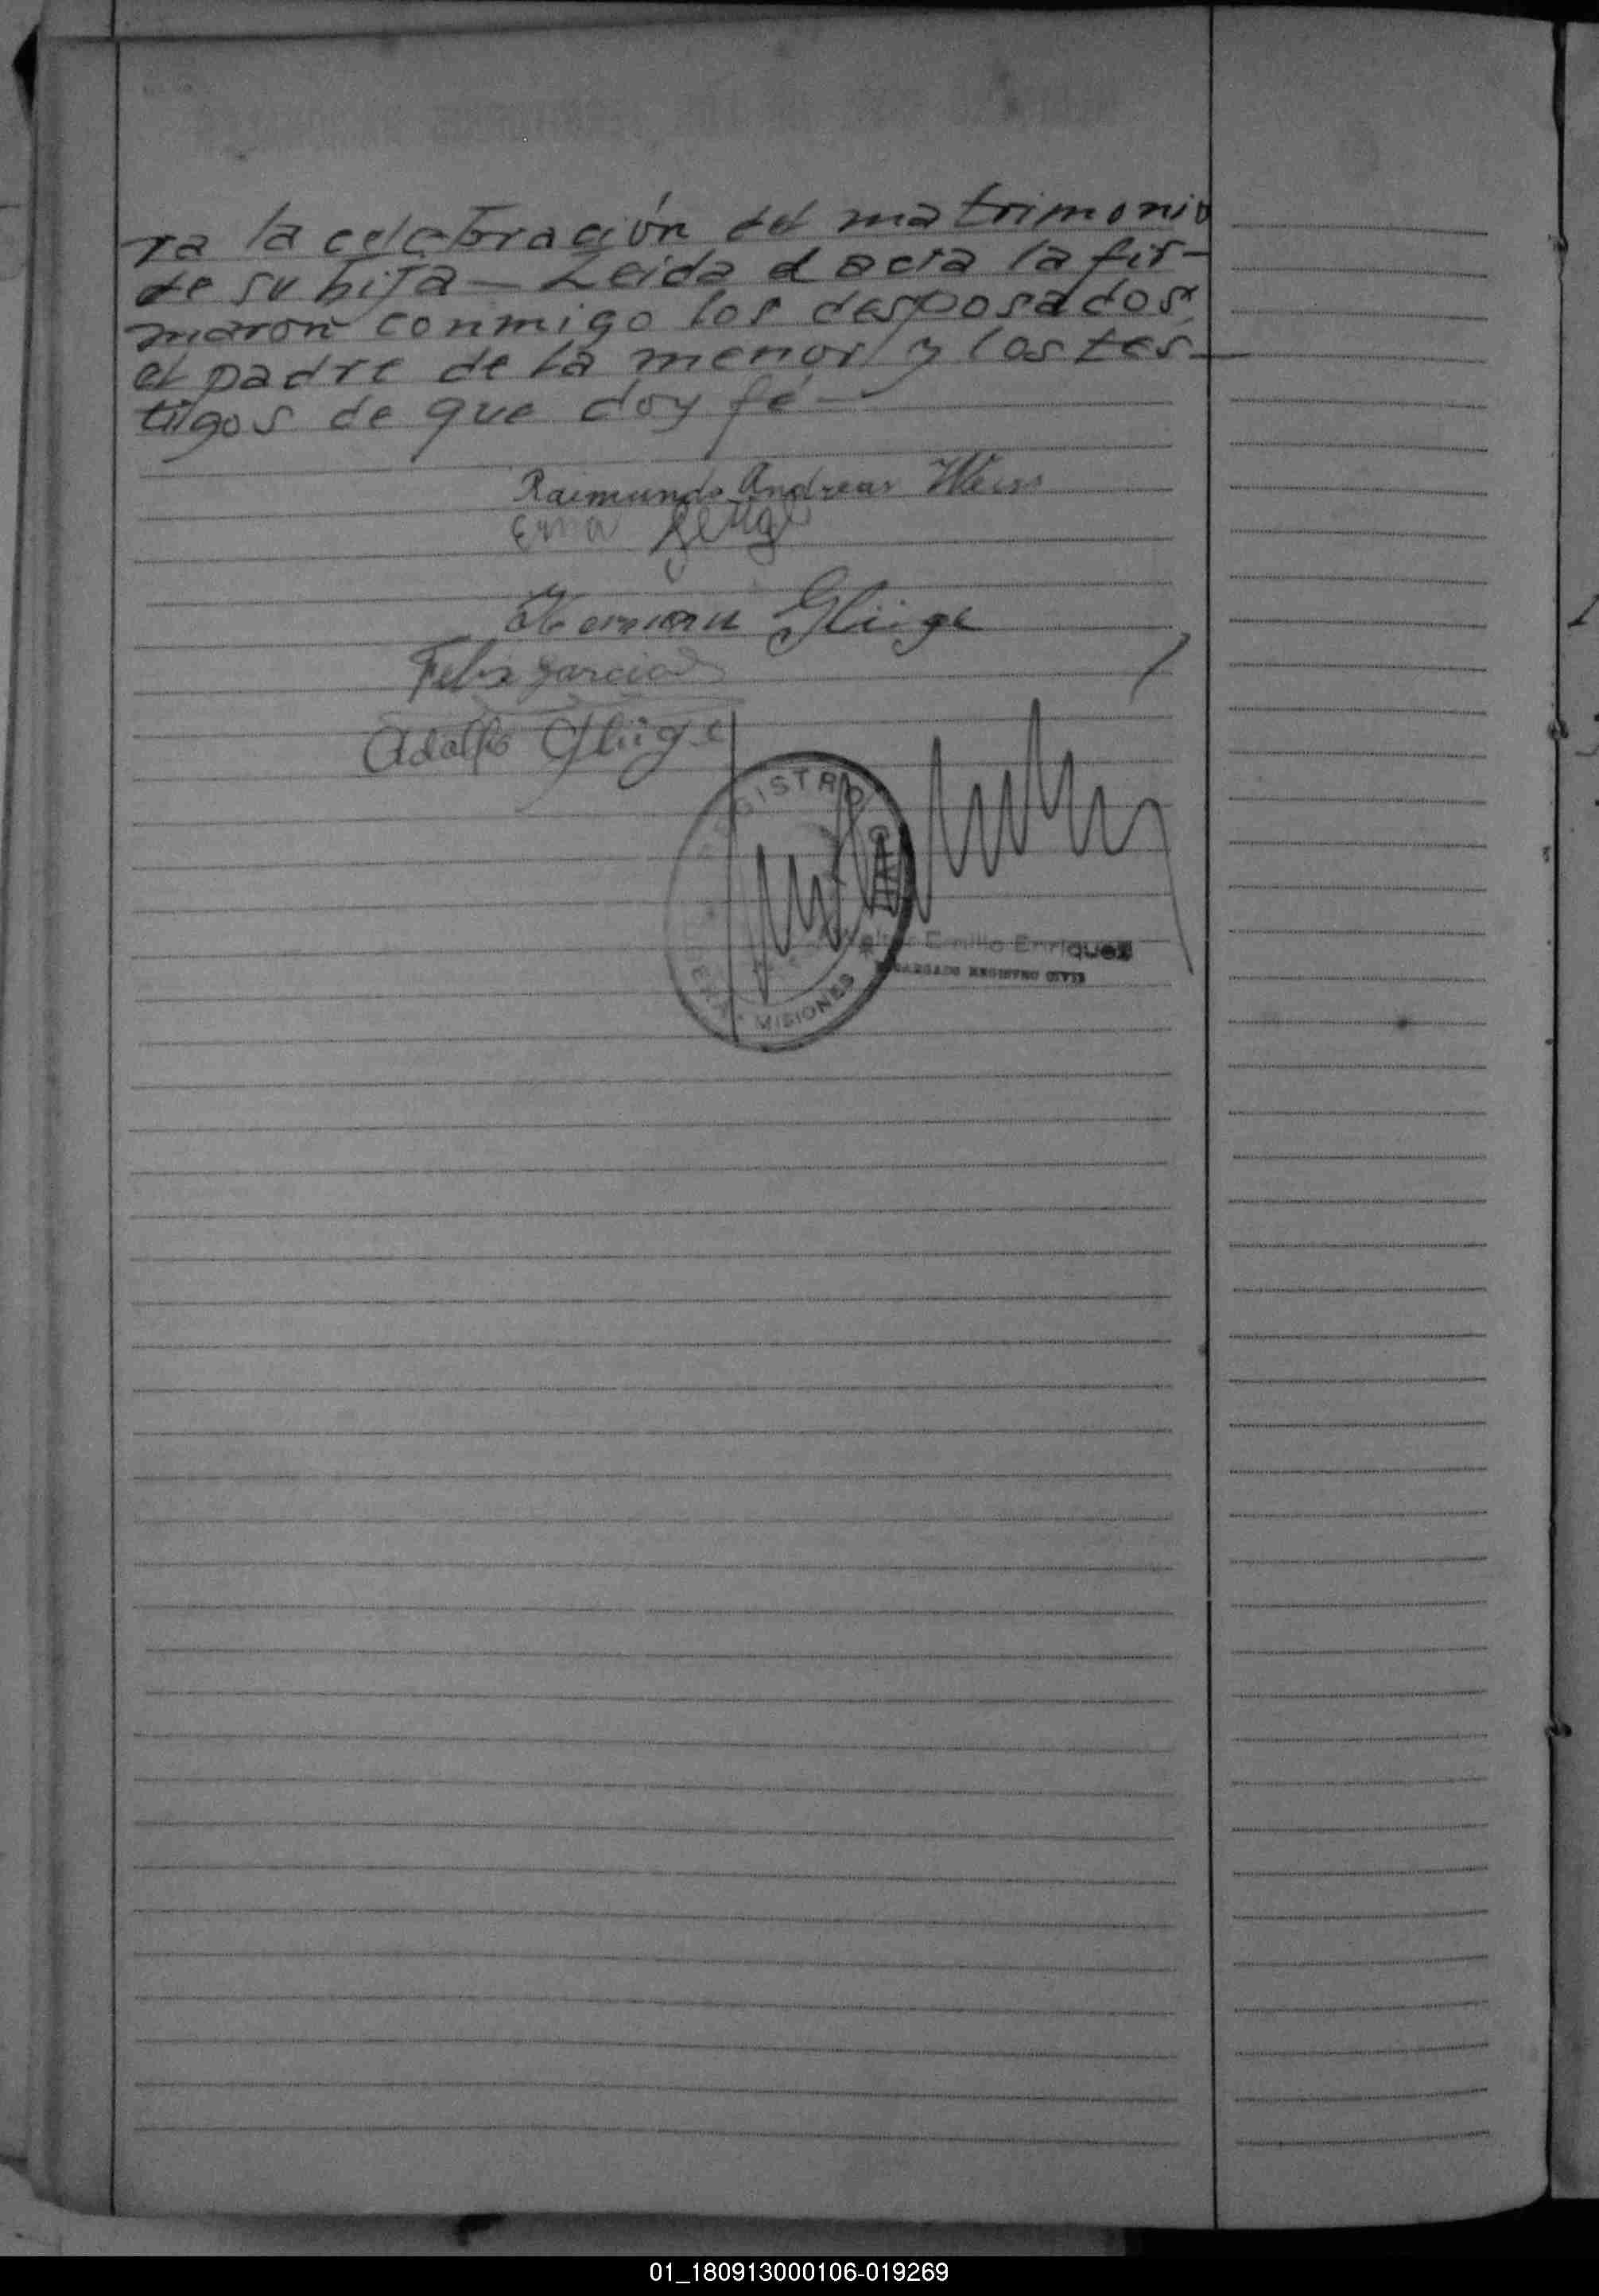 ra la celebración del matrimonio
de su hija - Leida el acta la fir-
maron conmigo los desposados,
el padre de la menor y los tes-
tigos de que doy fé -
Raimundo Andreas Weiss
Erna Glüge
Hermann Glüge
Felix Garcia
Adolfo Glüge
REGISTRO CIVIL
MISIONES
Emilio Enriquez
ENCARGADO REGISTRO CIVIL
01_180913000106-019269